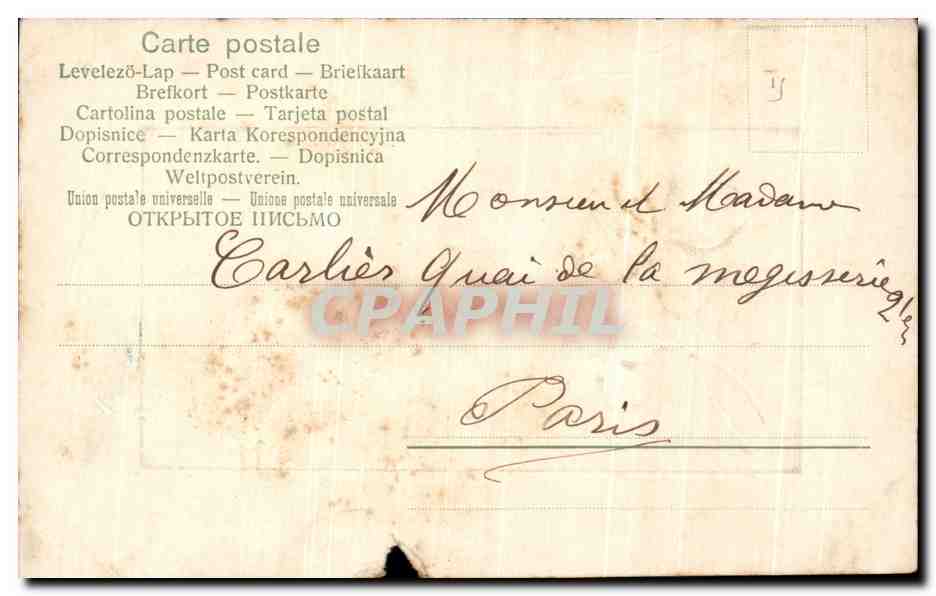 Carte postale
Levelező-Lap — Post card — Briefkaart
Brefkort — Postkarte
Cartolina postale — Tarjeta postal
Dopisnice — Karta Korespondencyjna
Correspondenzkarte. — Dopisnica
Weltpostverein.
Union postale universelle — Unione postale universale
ОТКРЫТОЕ ПИСЬМО
15
Monsieur et Madame
Carlier Quai de la megisserie
CPAPHIL
Paris